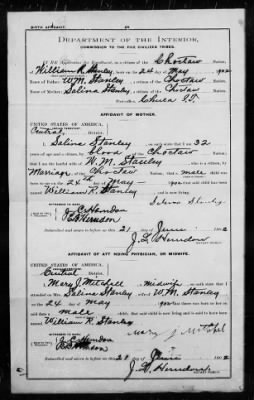 BIRTH AFFIDAVIT.
DEPARTMENT OF THE INTERIOR,
COMMISSION TO THE FIVE CIVILIZED TRIBES.
IN RE Application for Enrollment, as a citizen of the Choctaw Nation,
William R. Stanley, born on the 24 day of May, 1902
Name of Father: W.M. Stanley a citizen of the Choctaw Nation.
Name of Mother: Salina Stanley a citizen of the Choctaw Nation.
Post-office,
AFFIDAVIT OF MOTHER.
UNITED STATES OF AMERICA,
Central District.
I, Salina Stanley, on oath state that I am 32
years of age and a citizen, by blood, of the Choctaw Nation;
that I am the lawful wife of W.M. Stanley, who is a citizen, by
Marriage, of the Choctaw Nation; that a male child was
born to me on 24th day of May, 1902, that said child has been
named William R. Stanley, and is now living.
Salina Stanley
WITNESSES TO MARK:
Herndon
Herndon
Subscribed and sworn to before me this 21 day of June 1902
J. L. Herndon
NOTARY PUBLIC.
AFFIDAVIT OF ATTENDING PHYSICIAN, OR MIDWIFE.
UNITED STATES OF AMERICA,
Central District.
I, Mary J. Mitchell, a midwife, on oath state that I
attended on Mrs. Salina Stanley, wife of W.M. Stanley
on the 24 day of May, 1902, that there was born to her on said date a
male child; that said child is now living and is said to have been named
William R. Stanley
Mary J Mitchel
WITNESSES TO MARK:
Herndon
Subscribed and sworn to before me this 21 day of June 1902
J. L. Herndon
NOTARY PUBLIC.